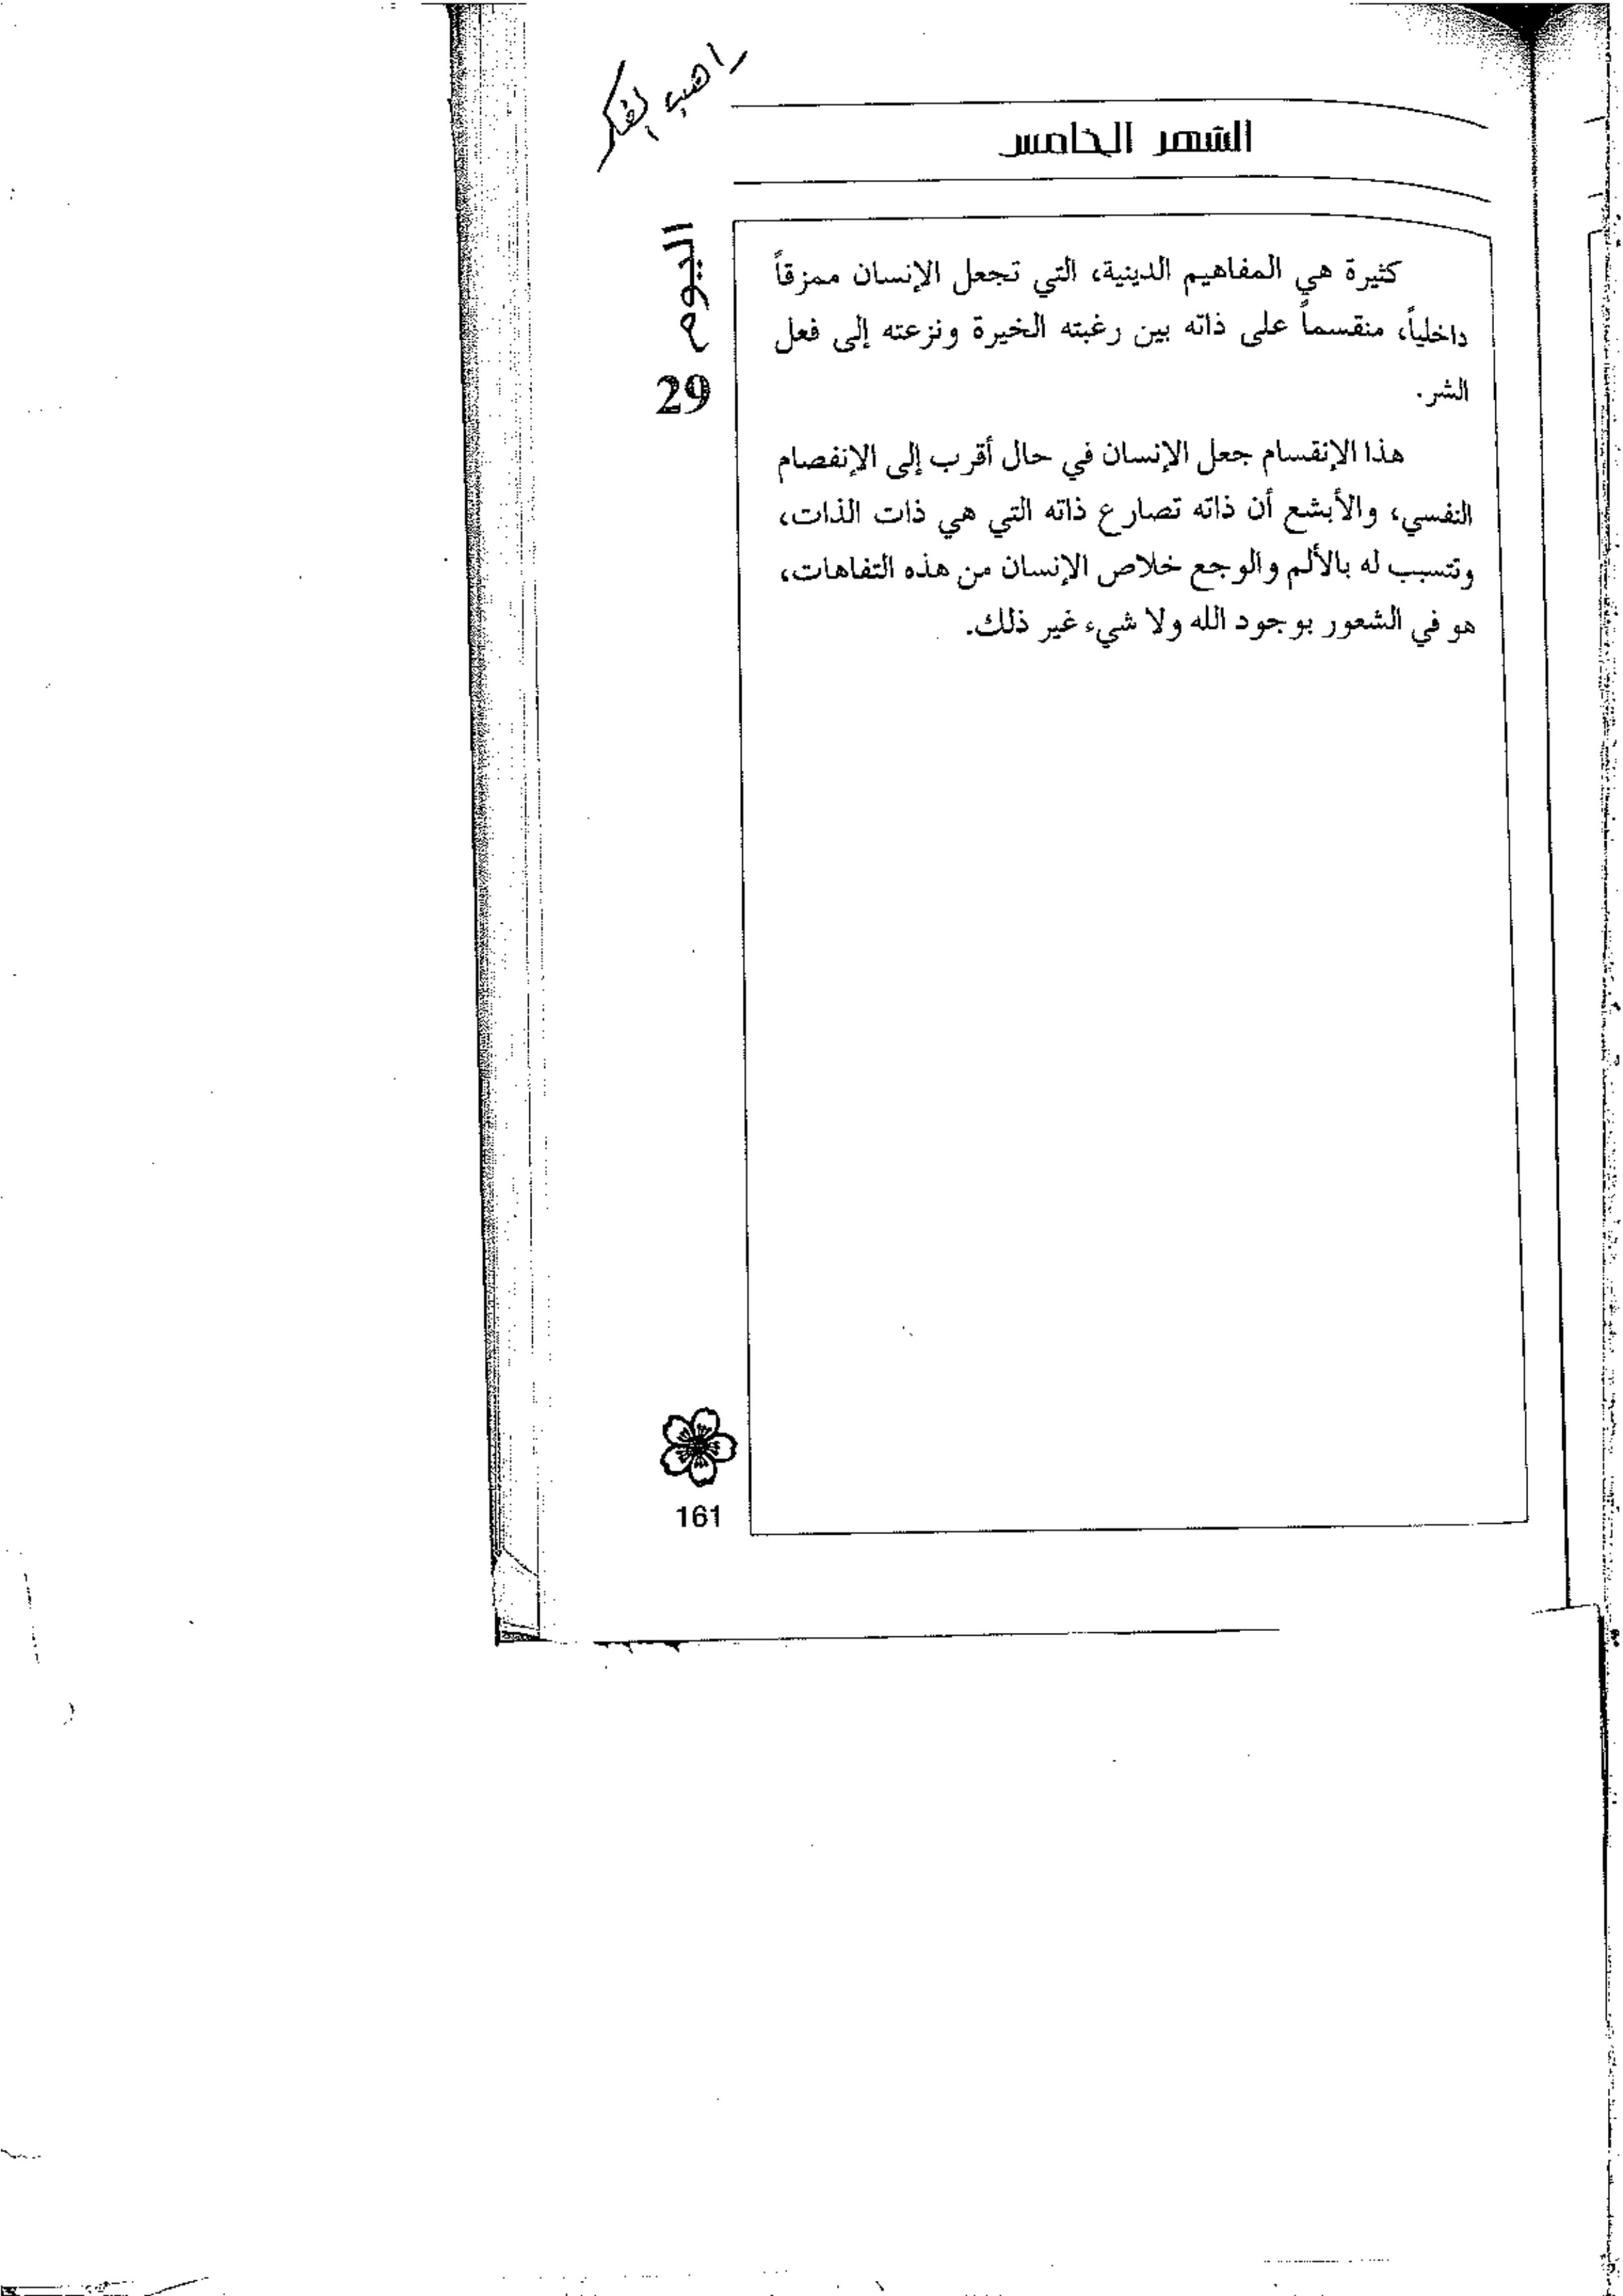 راهب الفكر
الشهر الخامس
اليوم
29
كثيرة هي المفاهيم الدينية، التي تجعل الإنسان ممزقاً
داخلياً، منقسماً على ذاته بين رغبته الخيرة ونزعته إلى فعل
الشر.
هذا الإنقسام جعل الإنسان في حال أقرب إلى الإنفصام
النفسي، والأبشع أن ذاته تصارع ذاته التي هي ذات الذات،
وتتسبب له بالألم والوجع خلاص الإنسان من هذه التفاهات،
هو في الشعور بوجود الله ولا شيء غير ذلك.
161